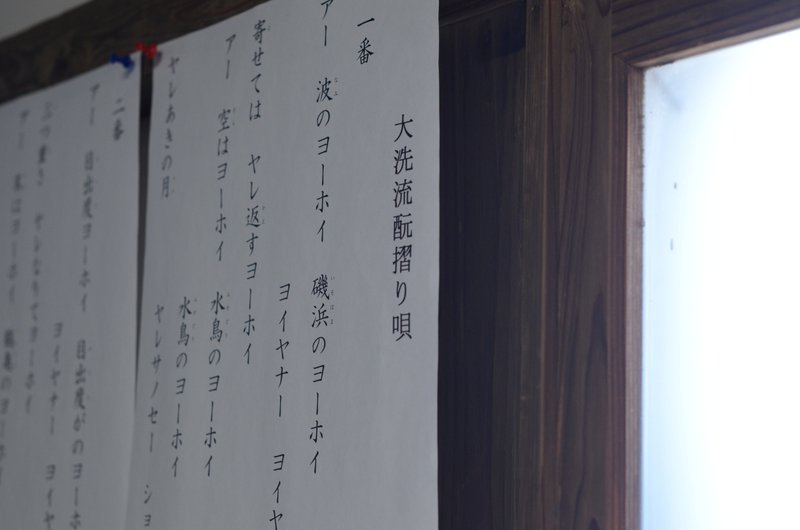 大洗流酛摺り唄
一番
アー 波のヨーホイ 磯浜のヨーホイ
ヨイヤナー ヨイヤ
寄せては ヤレ返すヨーホイ
アー 空はヨーホイ 水鳥のヨーホイ
水鳥のヨーホイ
ヤレあきの月
ヤレサノセー ショ
二番
アー 目出度ヨーホイ 目出度がのヨーホ
ヨイヤナー ヨイヤ